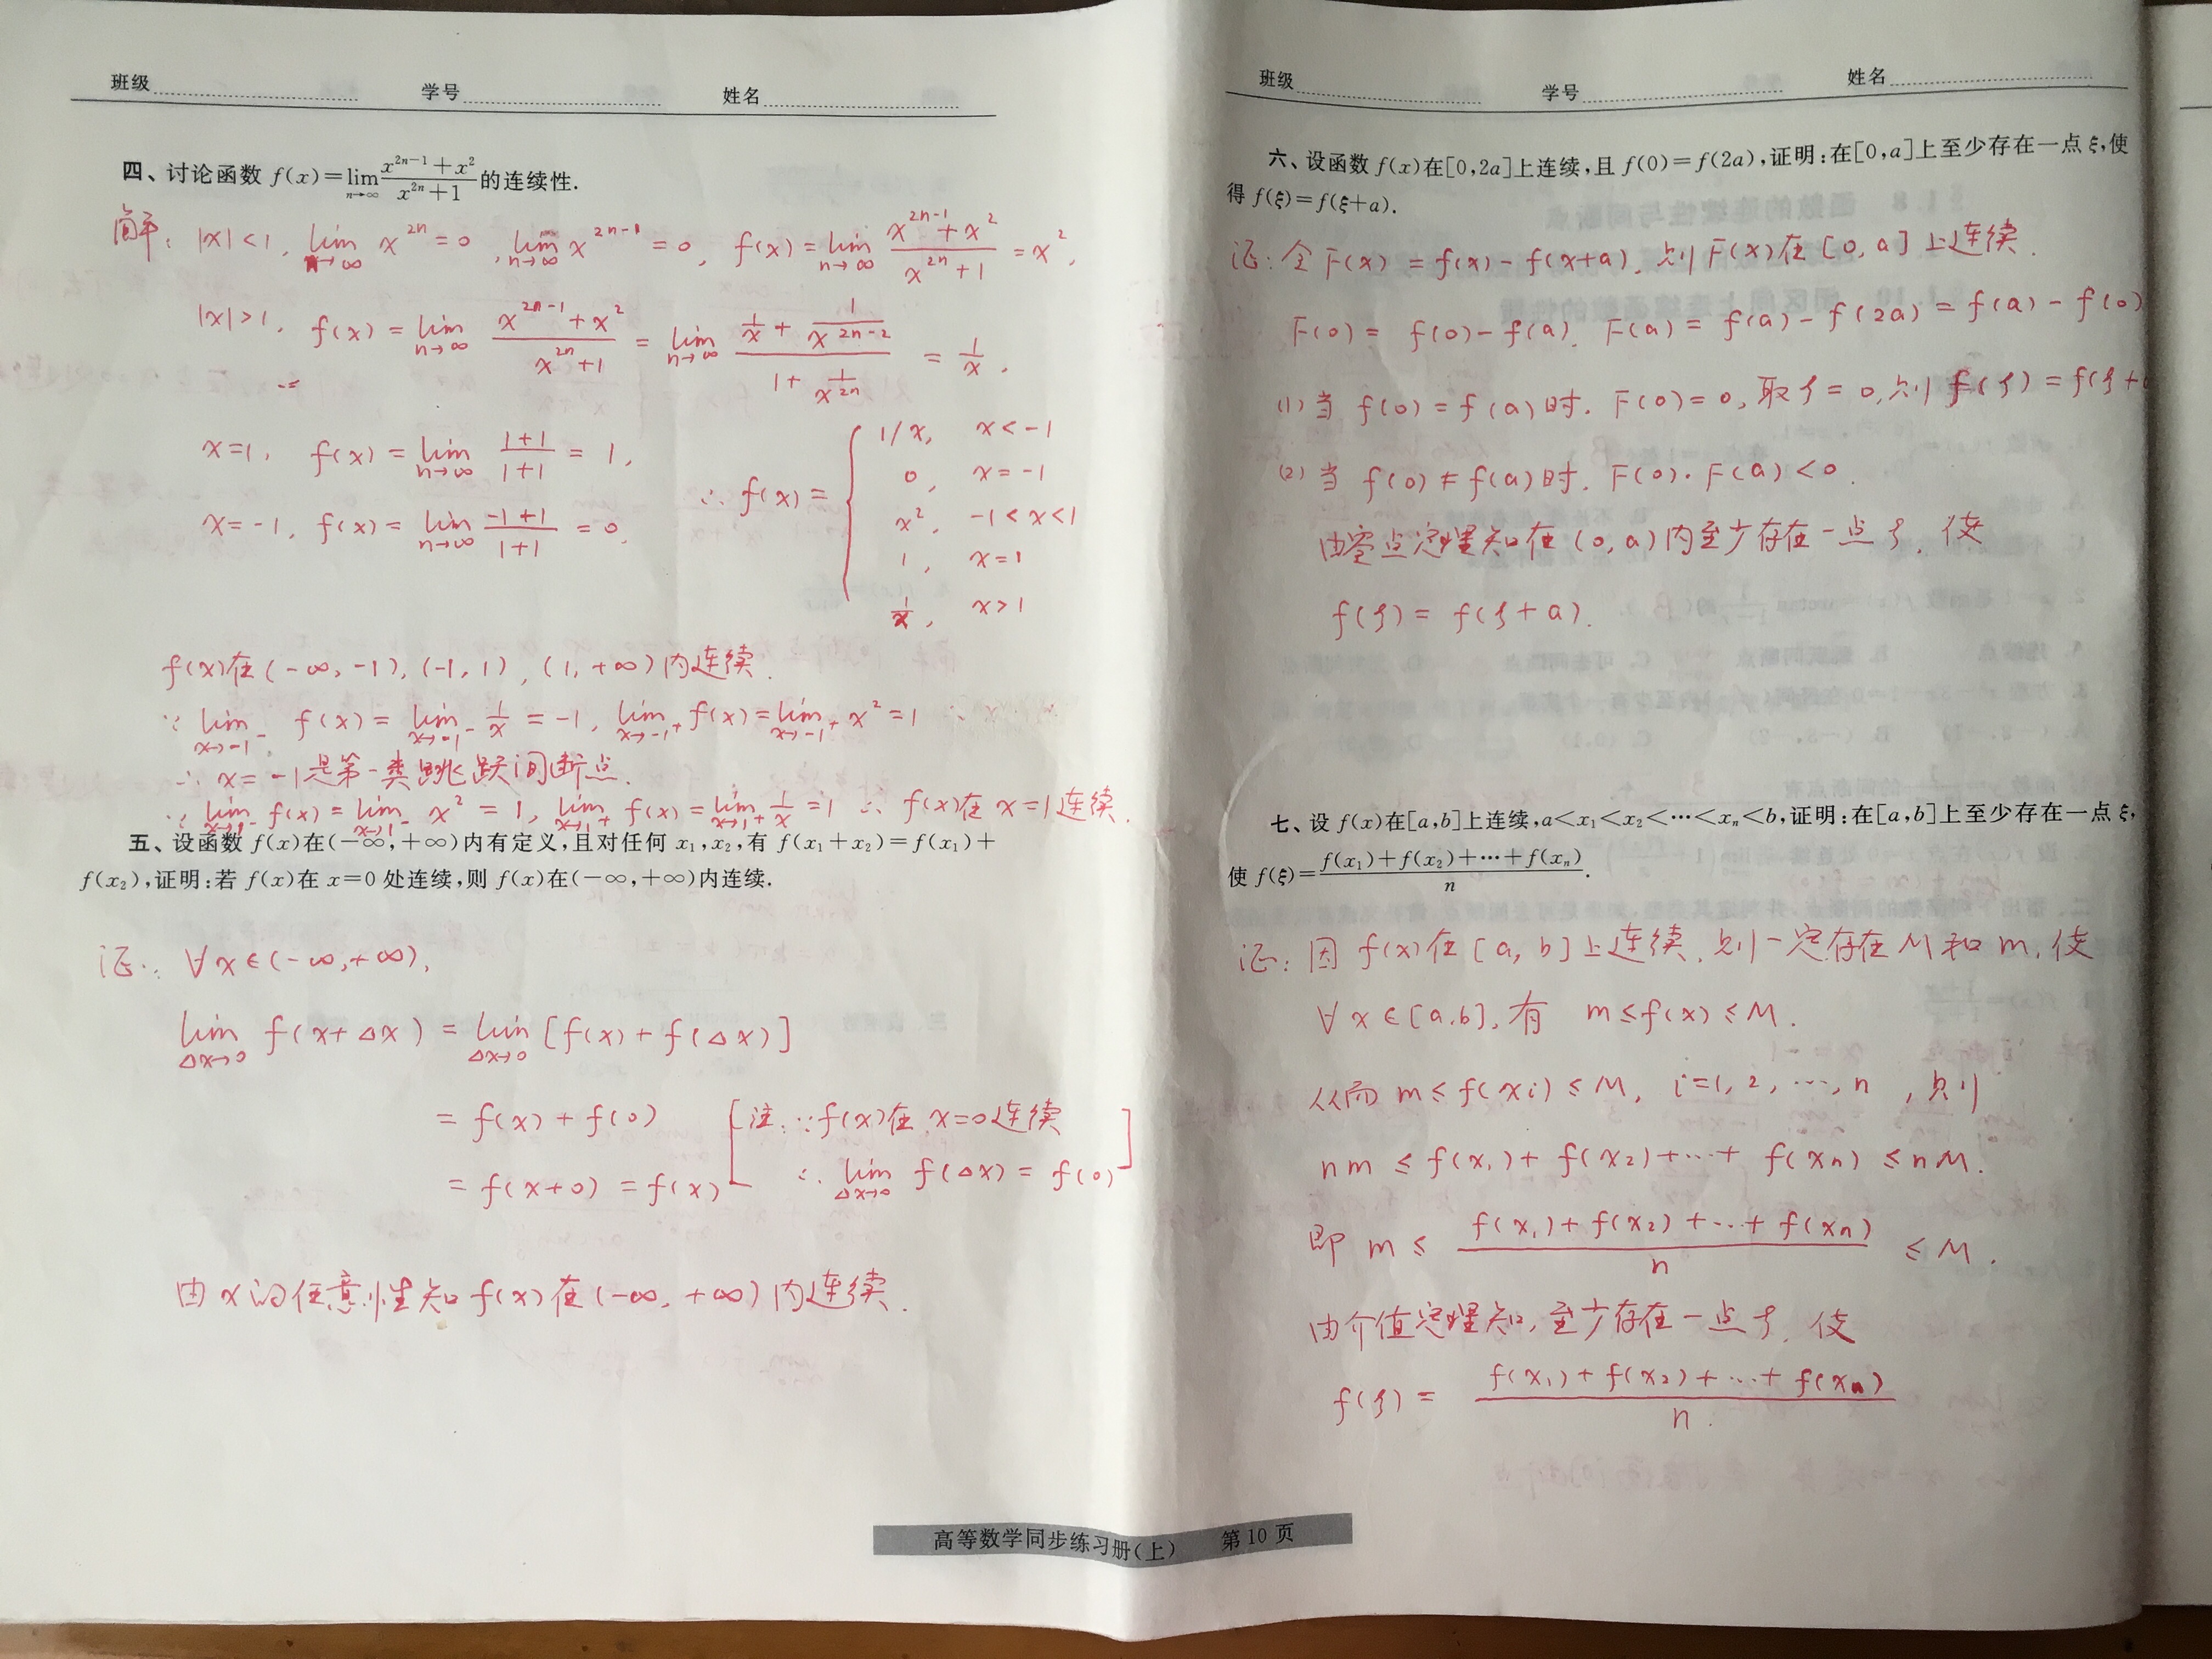 班级 学号 姓名
四、讨论函数 f(x)=lim_{n→∞} (x^{2n-1}+x^2)/(x^{2n}+1) 的连续性.
解: |x|<1, lim_{n→∞} x^{2n}=0, lim_{n→∞} x^{2n-1}=0, f(x)=lim_{n→∞} (x^{2n-1}+x^2)/(x^{2n}+1)=x^2,
|x|>1, f(x)=lim_{n→∞} (x^{2n-1}+x^2)/(x^{2n}+1)=lim_{n→∞} (1/x+1/x^{2n-2})/(1+1/x^{2n})=1/x,
x=1, f(x)=lim_{n→∞} (1+1)/(1+1)=1,
x=-1, f(x)=lim_{n→∞} (-1+1)/(1+1)=0,
∴ f(x)={
1/x, x<-1
0, x=-1
x^2, -1<x<1
1, x=1
1/x, x>1
f(x)在(-∞,-1),(-1,1),(1,+∞)内连续.
∵ lim_{x→-1^-} f(x)=lim_{x→-1^-} 1/x=-1, lim_{x→-1^+} f(x)=lim_{x→-1^+} x^2=1
∴ x=-1是第一类跳跃间断点.
∵ lim_{x→1^-} f(x)=lim_{x→1^-} x^2=1, lim_{x→1^+} f(x)=lim_{x→1^+} 1/x=1 ∴ f(x)在x=1连续.
五、设函数 f(x)在(-∞,+∞)内有定义,且对任何 x₁,x₂,有 f(x₁+x₂)=f(x₁)+
f(x₂),证明:若 f(x)在 x=0 处连续,则 f(x)在(-∞,+∞)内连续.
证: ∀x∈(-∞,+∞),
lim_{Δx→0} f(x+Δx)=lim_{Δx→0} [f(x)+f(Δx)]
=f(x)+f(0) [注: ∵f(x)在x=0连续
=f(x+0)=f(x) ∴ lim_{Δx→0} f(Δx)=f(0)]
由x的任意性知f(x)在(-∞,+∞)内连续.
班级 学号 姓名
六、设函数 f(x)在[0,2a]上连续,且 f(0)=f(2a),证明:在[0,a]上至少存在一点 ξ,使
得 f(ξ)=f(ξ+a).
证: 令F(x)=f(x)-f(x+a), 则F(x)在[0,a]上连续.
F(0)=f(0)-f(a). F(a)=f(a)-f(2a)=f(a)-f(0)
(1) 当 f(0)=f(a)时. F(0)=0, 取ξ=0, 则 f(ξ)=f(ξ+
(2) 当 f(0)≠f(a)时. F(0)·F(a)<0.
由零点定理知在(0,a)内至少存在一点ξ, 使
f(ξ)=f(ξ+a).
七、设 f(x)在[a,b]上连续,a<x₁<x₂<…<xₙ<b,证明:在[a,b]上至少存在一点 ξ,
使 f(ξ)=(f(x₁)+f(x₂)+…+f(xₙ))/n.
证: 因 f(x)在[a,b]上连续, 则一定存在M和m, 使
∀x∈[a,b], 有 m≤f(x)≤M.
从而 m≤f(xi)≤M, i=1,2,…,n, 则
nm≤f(x₁)+f(x₂)+…+f(xₙ)≤nM.
即 m≤(f(x₁)+f(x₂)+…+f(xₙ))/n≤M.
由介值定理知, 至少存在一点ξ, 使
f(ξ)=(f(x₁)+f(x₂)+…+f(xₙ))/n.
高等数学同步练习册(上) 第10页